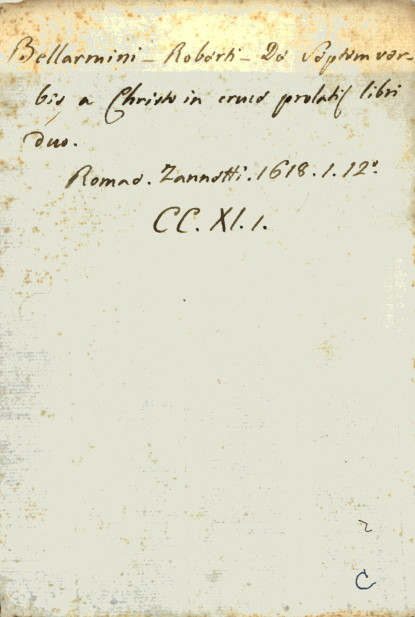 Bellarmini - Roberti - De Septem ver-
bis a Christo in cruce prolatis libri
duo.
Romae. Zannetti. 1618. 1. 12°.
CC. XI. 1.
2
C